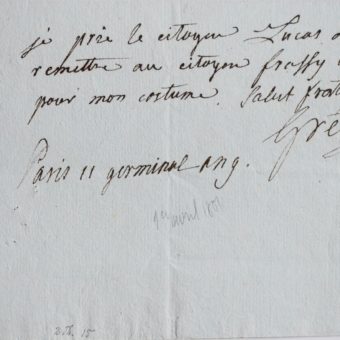 je prie le citoyen Lucas
remettre au citoyen frassy
pour mon costume. Salut frat
Gré
Paris 11 germinal an 9.
1er avril 1801